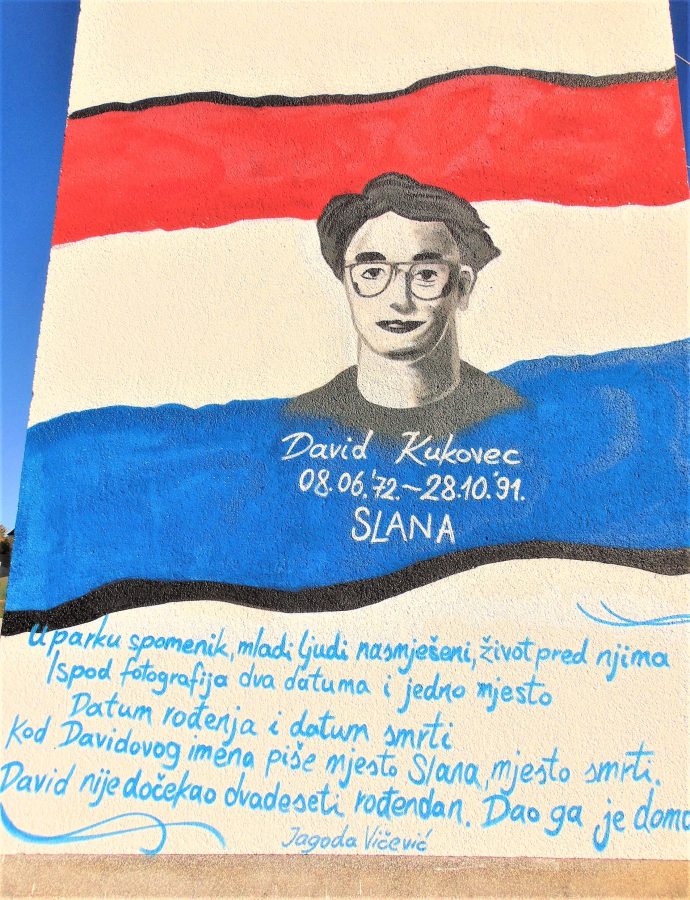 David Kukovec
08.06.'72.-28.10.'91.
SLANA
U parku spomenik, mladi ljudi nasmješeni, život pred njima
Ispod fotografija dva datuma i jedno mjesto
Datum rođenja i datum smrti
Kod Davidovog imena piše mjesto Slana, mjesto smrti.
David nije dočekao dvadeseti rođendan. Dao ga je domo
Jagoda Vičević